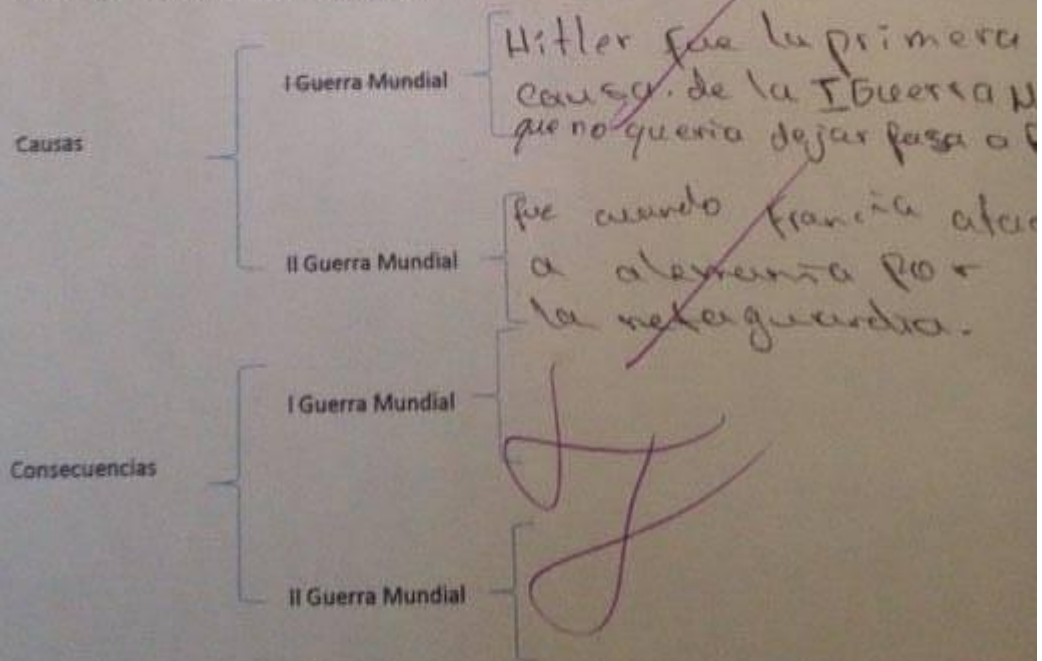 Causas
I Guerra Mundial
Hitler fue la primera
causa. de la I Guerra M
que no queria dejar pasa a
II Guerra Mundial
fue cuando francia atac
a alemania por
la retaguardia.
Consecuencias
I Guerra Mundial
II Guerra Mundial